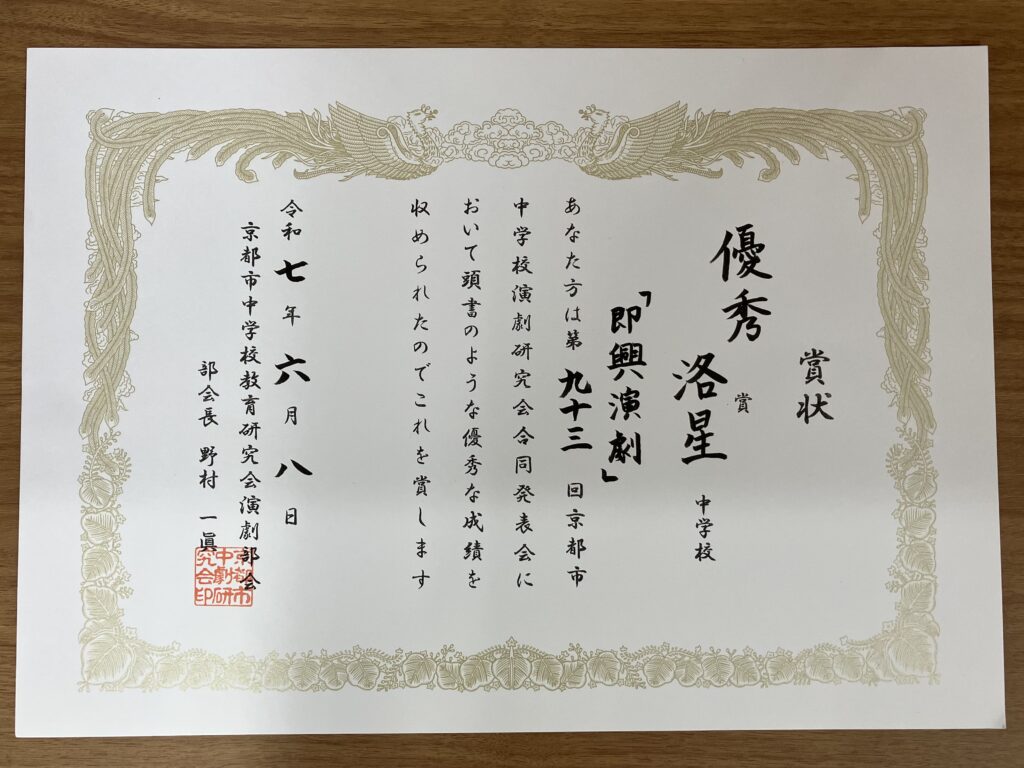 賞状
優秀賞
洛星中学校
「即興演劇」
あなた方は第九十三回京都市
中学校演劇研究会合同発表会に
おいて頭書のような優秀な成績を
収められたのでこれを賞します
令和七年六月八日
京都市中学校教育研究会演劇部会
部会長 野村 一眞
京都市
中劇研
究会印